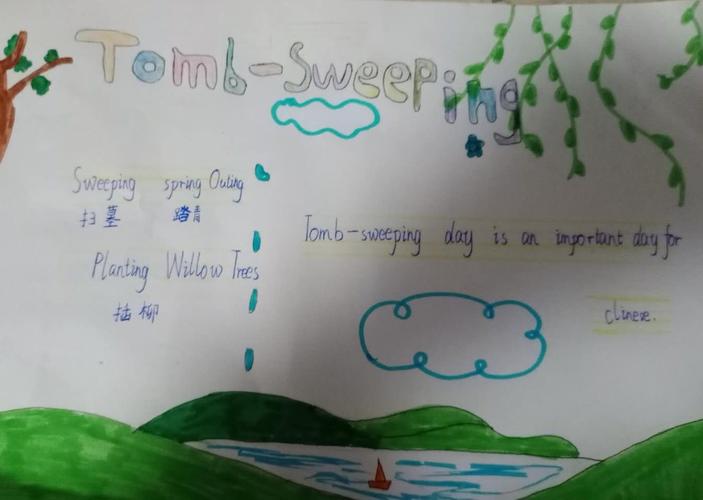 Tomb-Sweeping
Sweeping spring Outing
扫墓 踏青
Planting Willow Trees
插柳
Tomb-sweeping day is an important day for
clinese.